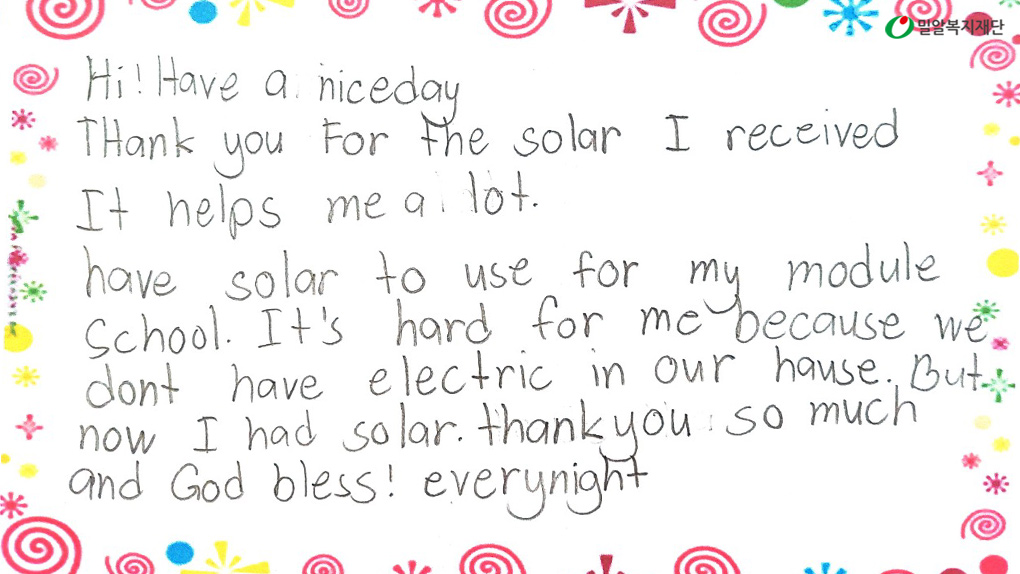 밀알복지재단
Hi! Have a niceday
THank you For the solar I received
It helps me a lot.
have solar to use for my module
School. It's hard for me because we
dont have electric in our hause. But
now I had solar. thank you so much
and God bless! everynight